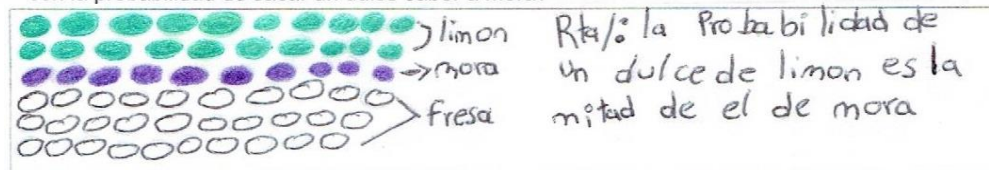 limon
mora
fresa
Rta/: la Probabilidad de
un dulce de limon es la
mitad de el de mora